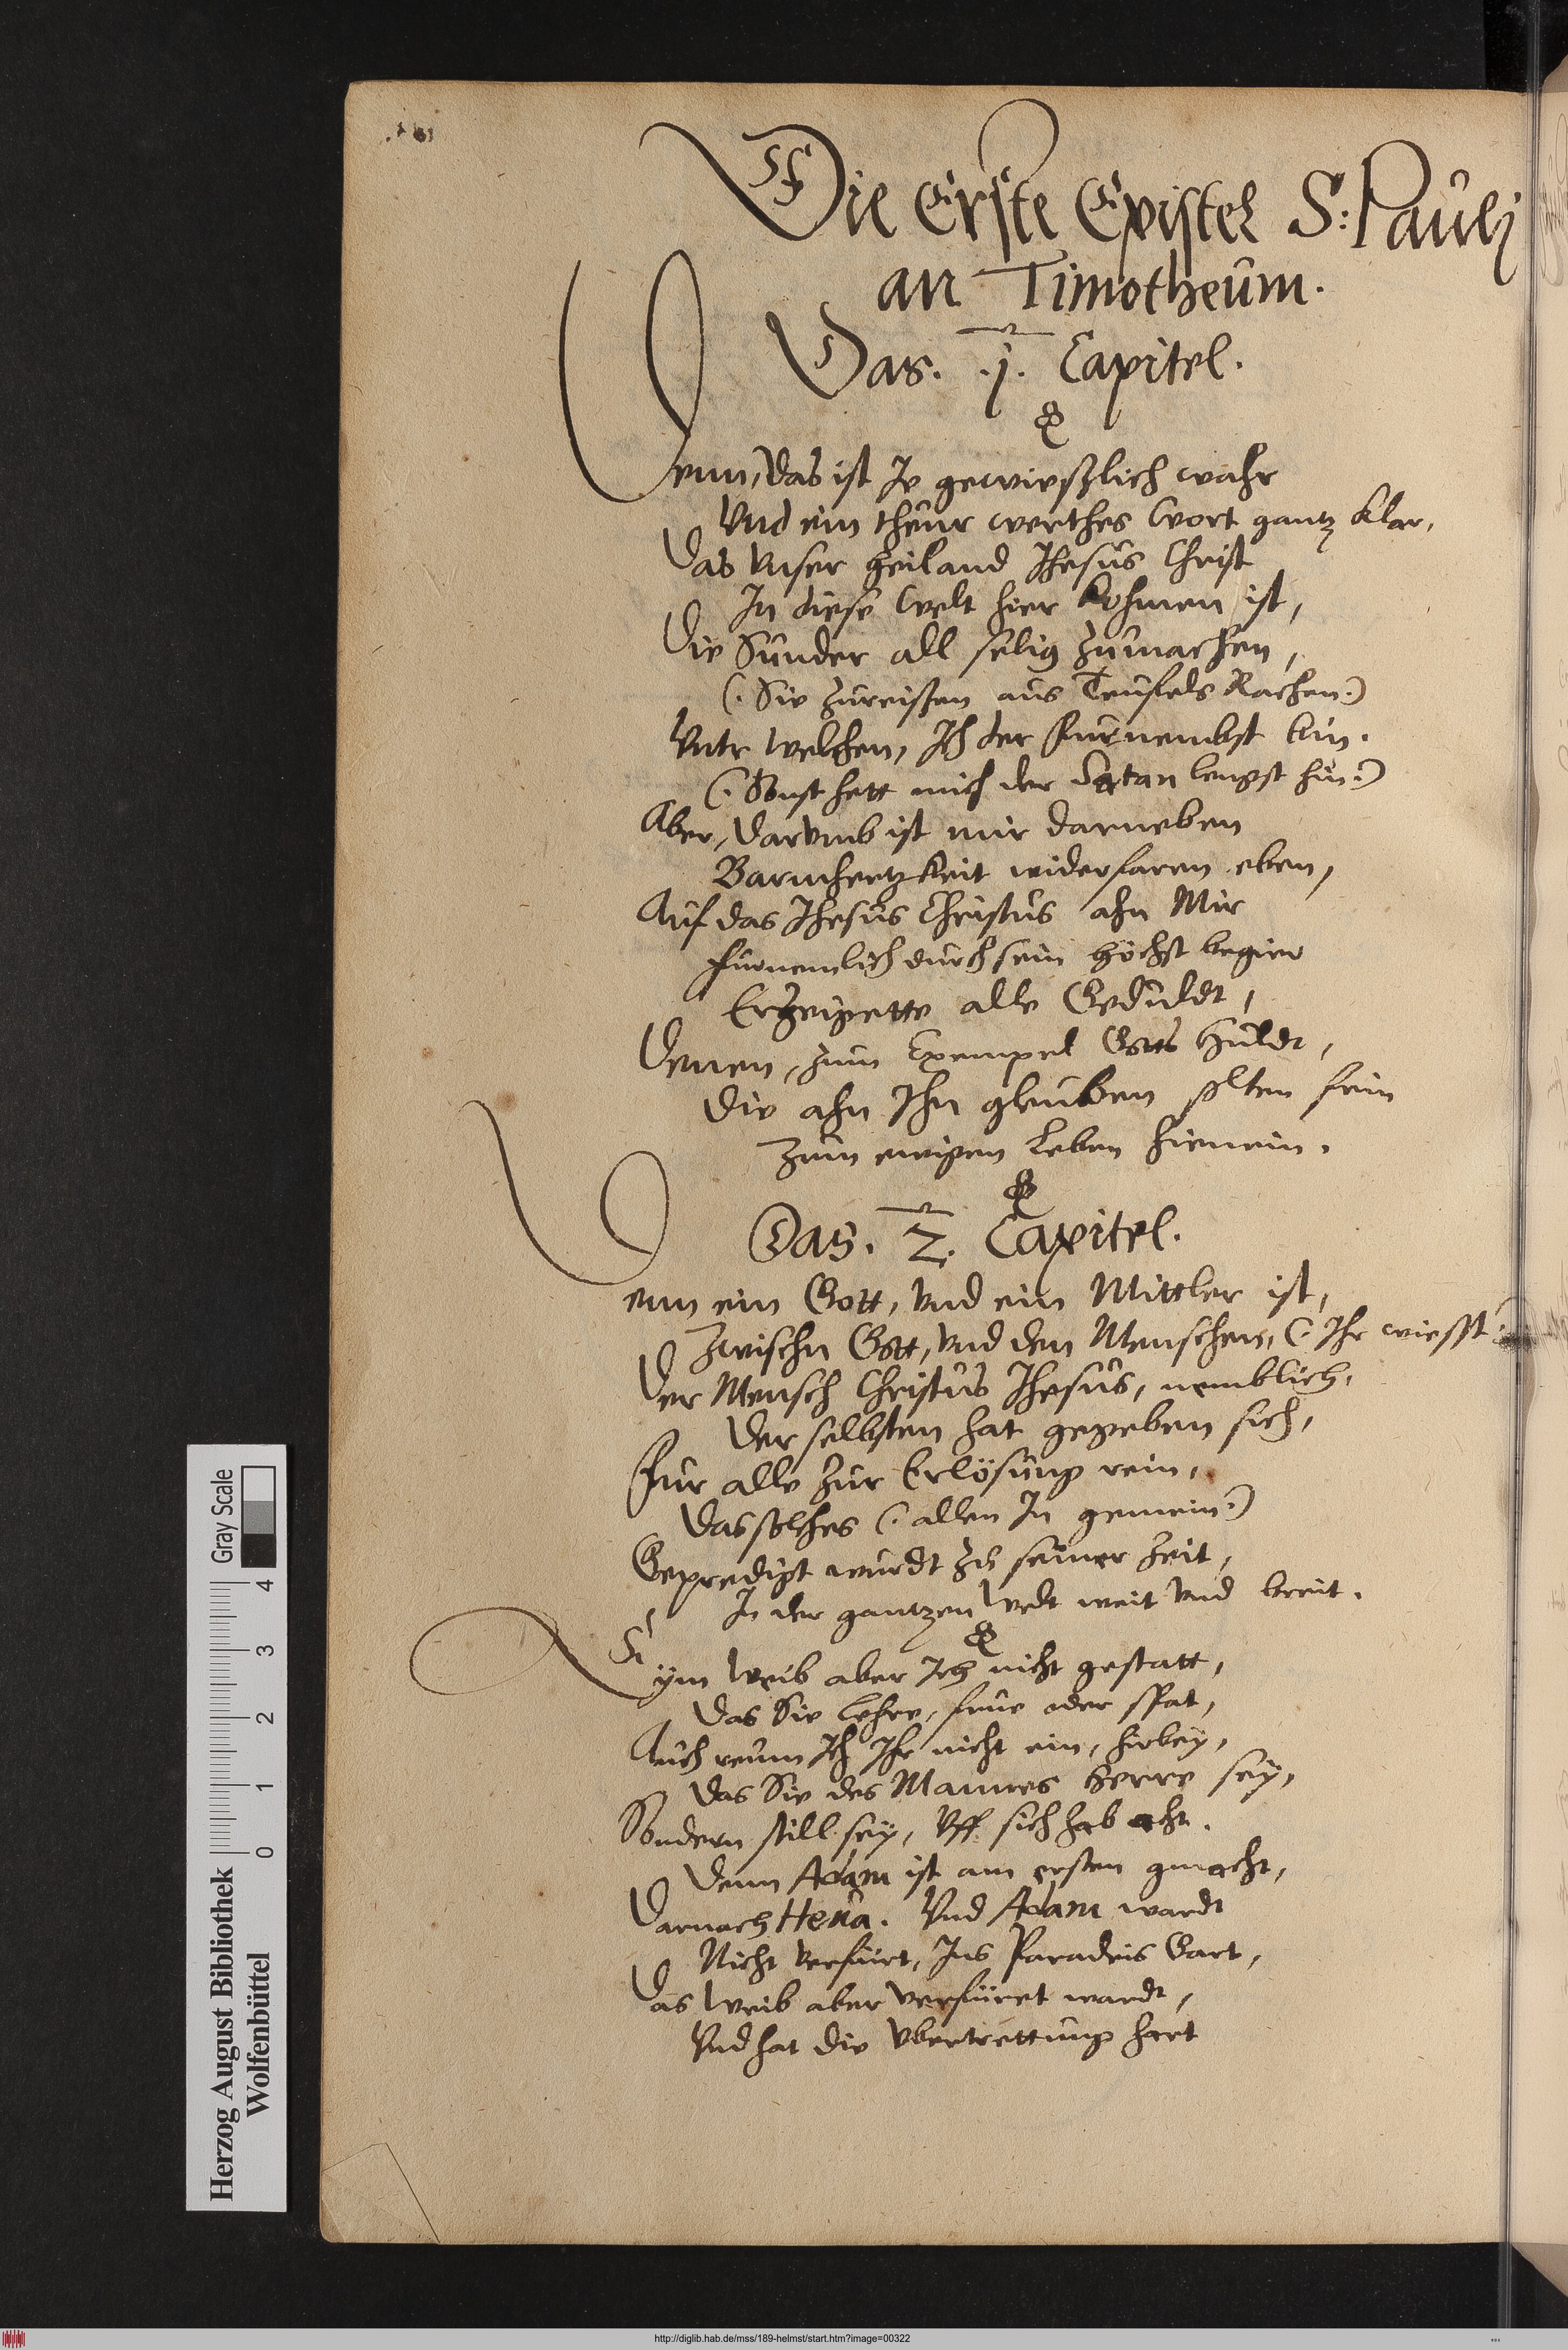 Die Erste Epistel S: Paulj
an Timotheum.
Das. .1. Capitel.
Denn, das ist Je gewießlich wahr
Vnd ein theur werthes Wort gantz klar,
Das Vnser Heiland Jhesus Christ
In diese Welt hier kohmen ist,
Die Sünder all selig zumachen,
(: Sie zureißen aus Teufels Rachen:)
Vntr welchen, Ich der furnembst bin.
(: Sonst hett mich der Satan lengst hin:)
Aber, darumb ist mir darneben
Barmhertzkeit widerfaren eben,
Auf das Jhesus Christus ahn Mir
furnemlich durch sein höchst begier
Erzeigette alle Geduldt,
Denen, zum Exempel Gotts Huldt,
Die ahn Ihn gleuben solten fein
Zum ewigen Leben hienein.
Das. 2. Capitel.
Denn ein Gott, vnd ein Mittler ist,
Zwischn Gott, vnd den Menschen, (: Ihr wiesst:)
Der Mensch Christus Jhesus, nemblich,
Der selbsten hat gegeben sich,
Fur alle zur Erlösung rein,
Das solches (: allen In gemein:)
Gepredigt wurdt zu seiner Zeit,
In der gantzen Welt weit vnd breit.
Eynn Weib aber Ich nicht gestatt,
Das Sie Lehre, frue oder spat,
Auch reum Ich Ihr nicht ein, hirbey,
Das Sie des Mannes Herre sey,
Sondern still sey, Vff sich hab acht.
Denn Adam ist am ersten gmacht,
Darnach Heua. Vnd Adam wardt
Nicht verfürt, Ins Paradeis Gart,
Das Weib aber verfüret wardt,
Vnd hat die Vbertrettung hart
Herzog August Bibliothek
Wolfenbüttel
0 1 2 3 4
Gray Scale
http://diglib.hab.de/mss/189-helmst/start.htm?image=00322